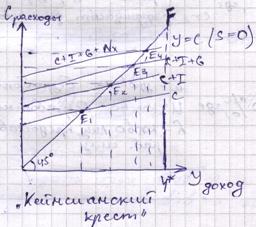 C расходы
F
Y=C (S=0)
C+I+G+Nx
E4
C+I+G
E3
C+I
E2
C
E1
45°
Y*
Y доход
„Кейнсианский
крест"